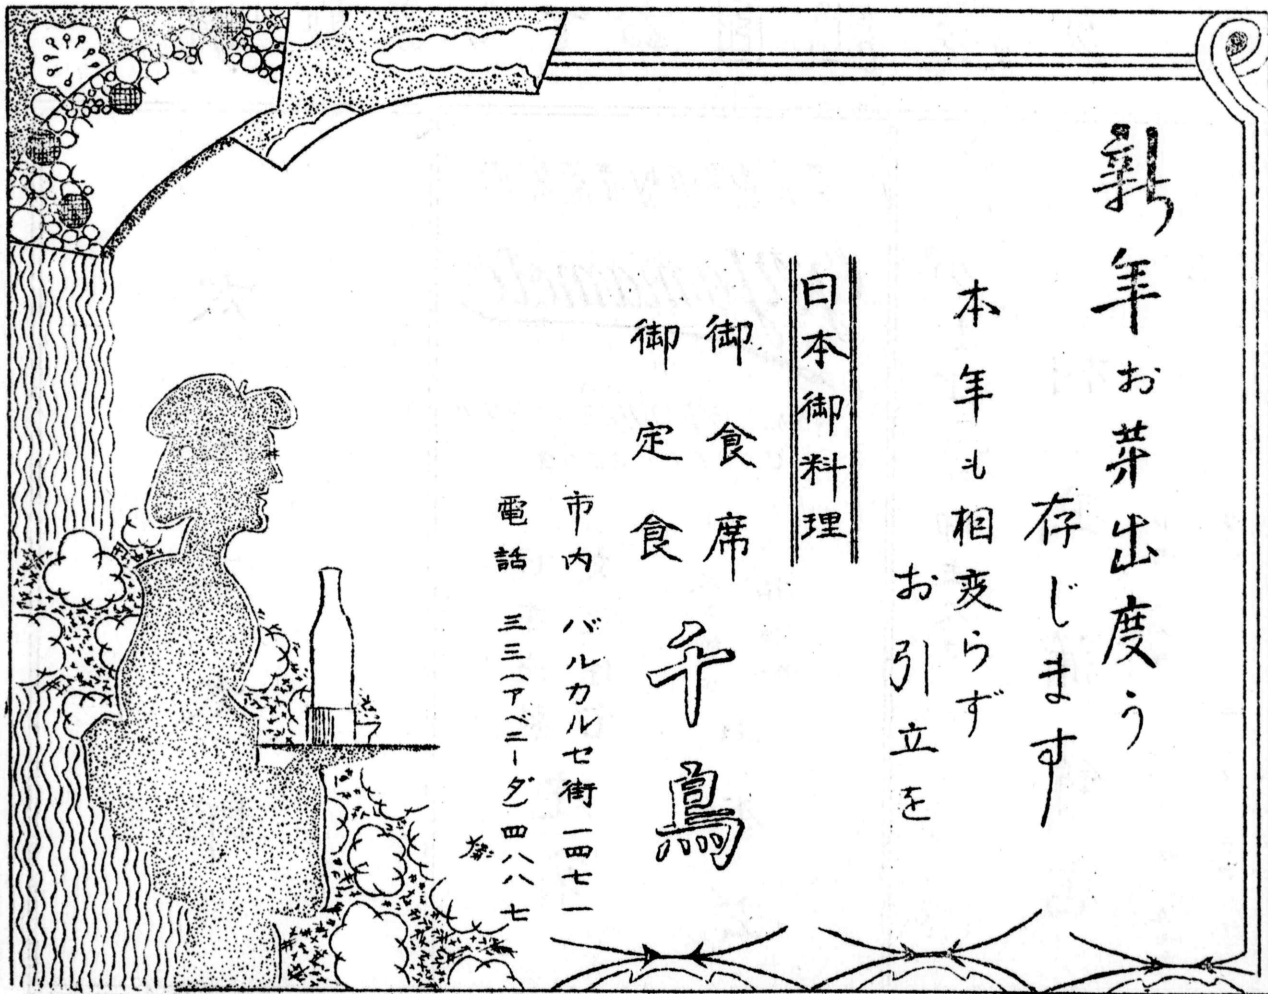 新年お芽出度う
存じます
本年も相変らず
お引立を
日本御料理
御食席
御定食
千鳥
市内 バルカルセ街 一四七一
電話 三三(アベニーダ)四八八七